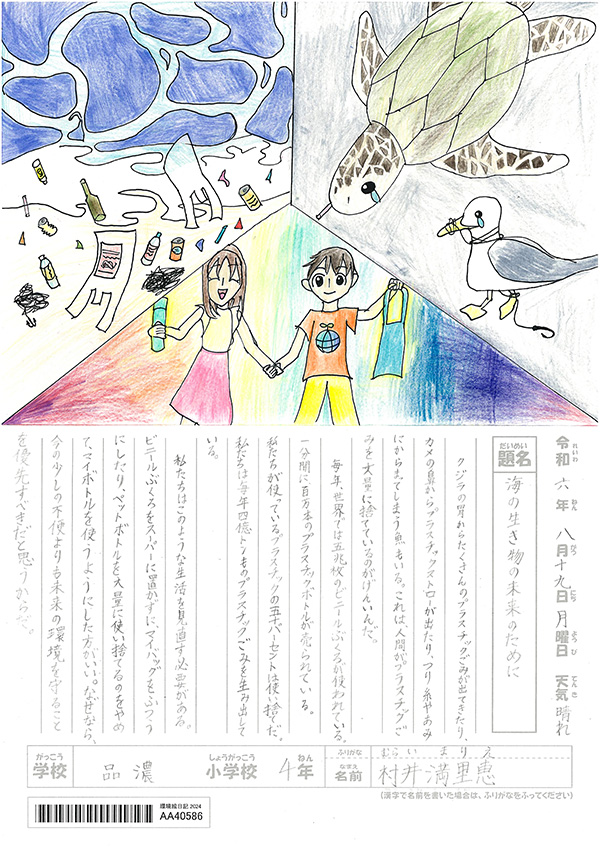 令和 六年 八月十九日 月曜日 天気 晴れ
れいわ ねん がつ にち ようび てんき
だいめい
題名
海の生き物の未来のために
クジラの胃からたくさんのプラスチックごみが出てきたり、
カメの鼻からプラスチックストローが出たり、つり糸やあみ
にからまってしまう魚もいる。これは、人間がプラスチックご
みを大量に捨てているのがげんいんだ。
毎年、世界では五兆枚のビニールぶくろが使われている。
一分間に百万本のプラスチックボトルが売られている。
私たちが使っているプラスチックの五十パーセントは使い捨てだ。
私たちは毎年四億トンものプラスチックごみを生み出して
いる。
私たちはこのような生活を見直す必要がある。
ビニールぶくろをスーパーに置かずに、マイバッグをふつう
にしたり、ペットボトルを大量に使い捨てるのをやめ
て、マイボトルを使うようにした方がいい。なぜなら、
今の少しの不便よりも未来の環境を守ること
を優先すべきだと思うからだ。
がっこう
学校
品濃
しょうがっこう
小学校
4年
ねん
ふりがな
むらい まりえ
なまえ
名前
村井満里恵
(漢字で名前を書いた場合は、ふりがなをふってください)
環境絵日記 2024
AA40586